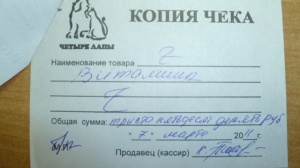 КОПИЯ ЧЕКА
ЧЕТЫРЕ ЛАПЫ
Наименование товара
Витамины
Общая сумма: триста пятьдесят девять руб
"7" марта 2011 г.
Продавец (кассир)